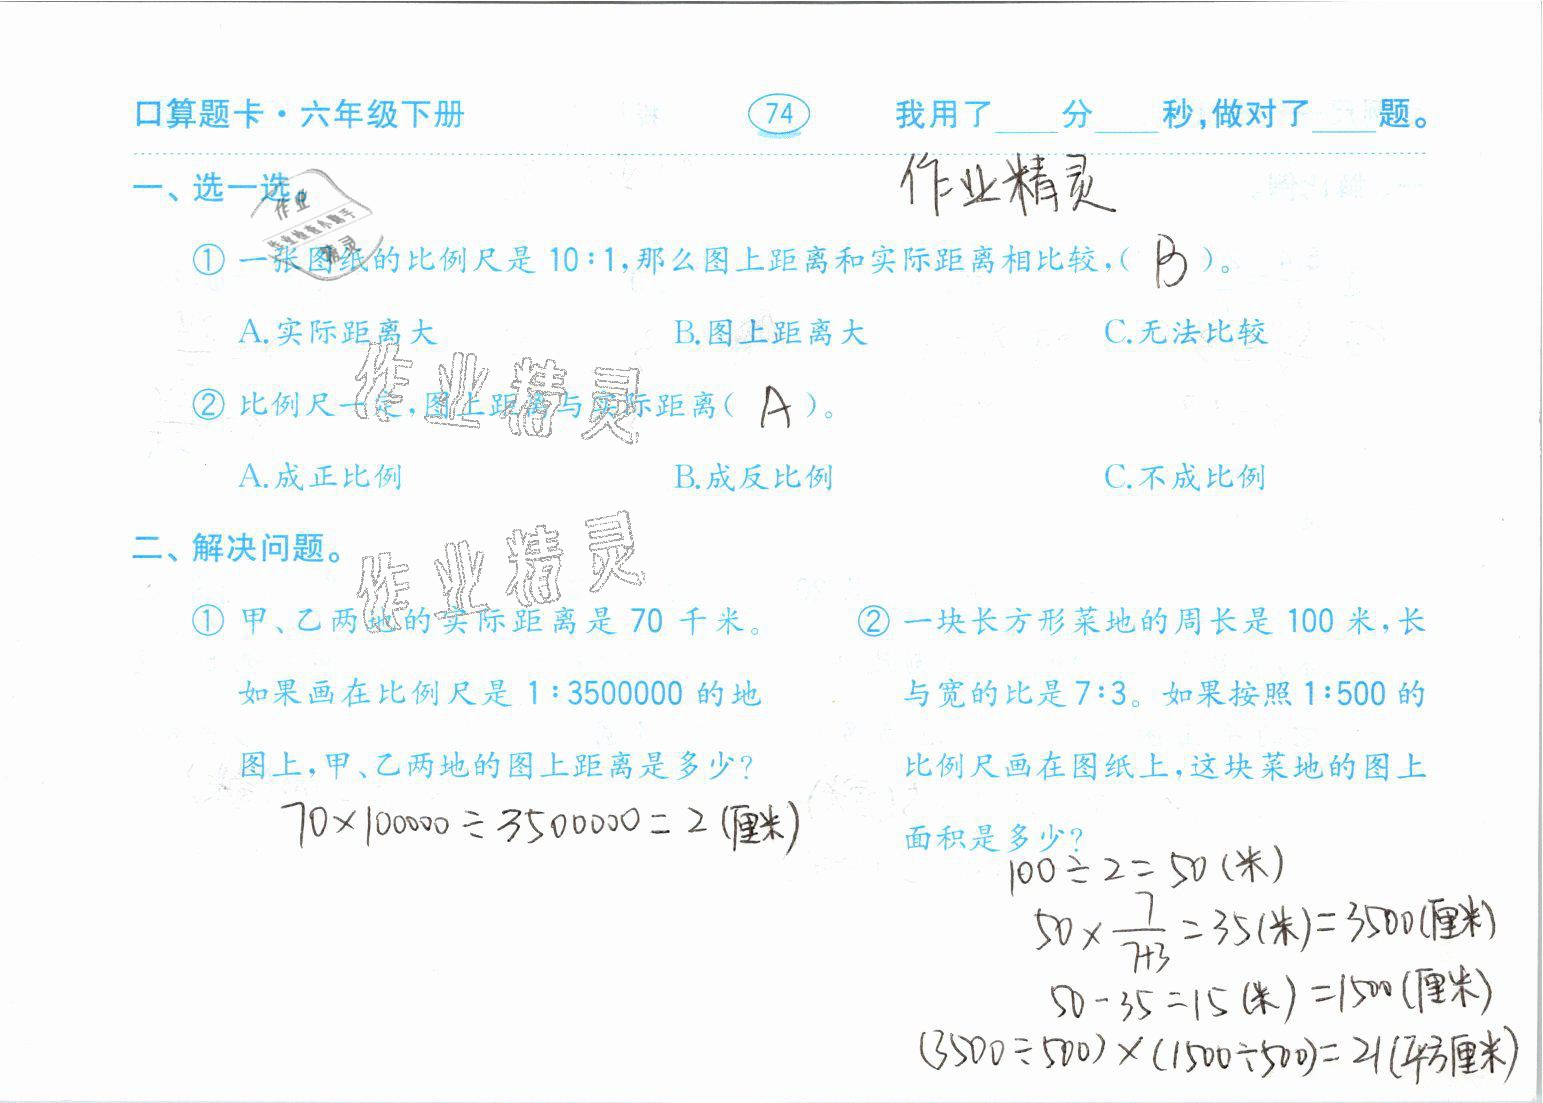 口算题卡·六年级下册 74 我用了____分____秒,做对了____题。
作业精灵
一、选一选。
作业
作业检查小助手
精灵
① 一张图纸的比例尺是 10:1,那么图上距离和实际距离相比较,( B )。
A.实际距离大 B.图上距离大 C.无法比较
作业精灵
② 比例尺一定,图上距离与实际距离( A )。
A.成正比例 B.成反比例 C.不成比例
二、解决问题。
作业精灵
① 甲、乙两地的实际距离是 70 千米。
如果画在比例尺是 1:3500000 的地
图上,甲、乙两地的图上距离是多少?
70×100000÷3500000=2(厘米)
② 一块长方形菜地的周长是 100 米,长
与宽的比是 7:3。如果按照 1:500 的
比例尺画在图纸上,这块菜地的图上
面积是多少?
100÷2=50(米)
50×7/(7+3)=35(米)=3500(厘米)
50-35=15(米)=1500(厘米)
(3500÷500)×(1500÷500)=21(平方厘米)